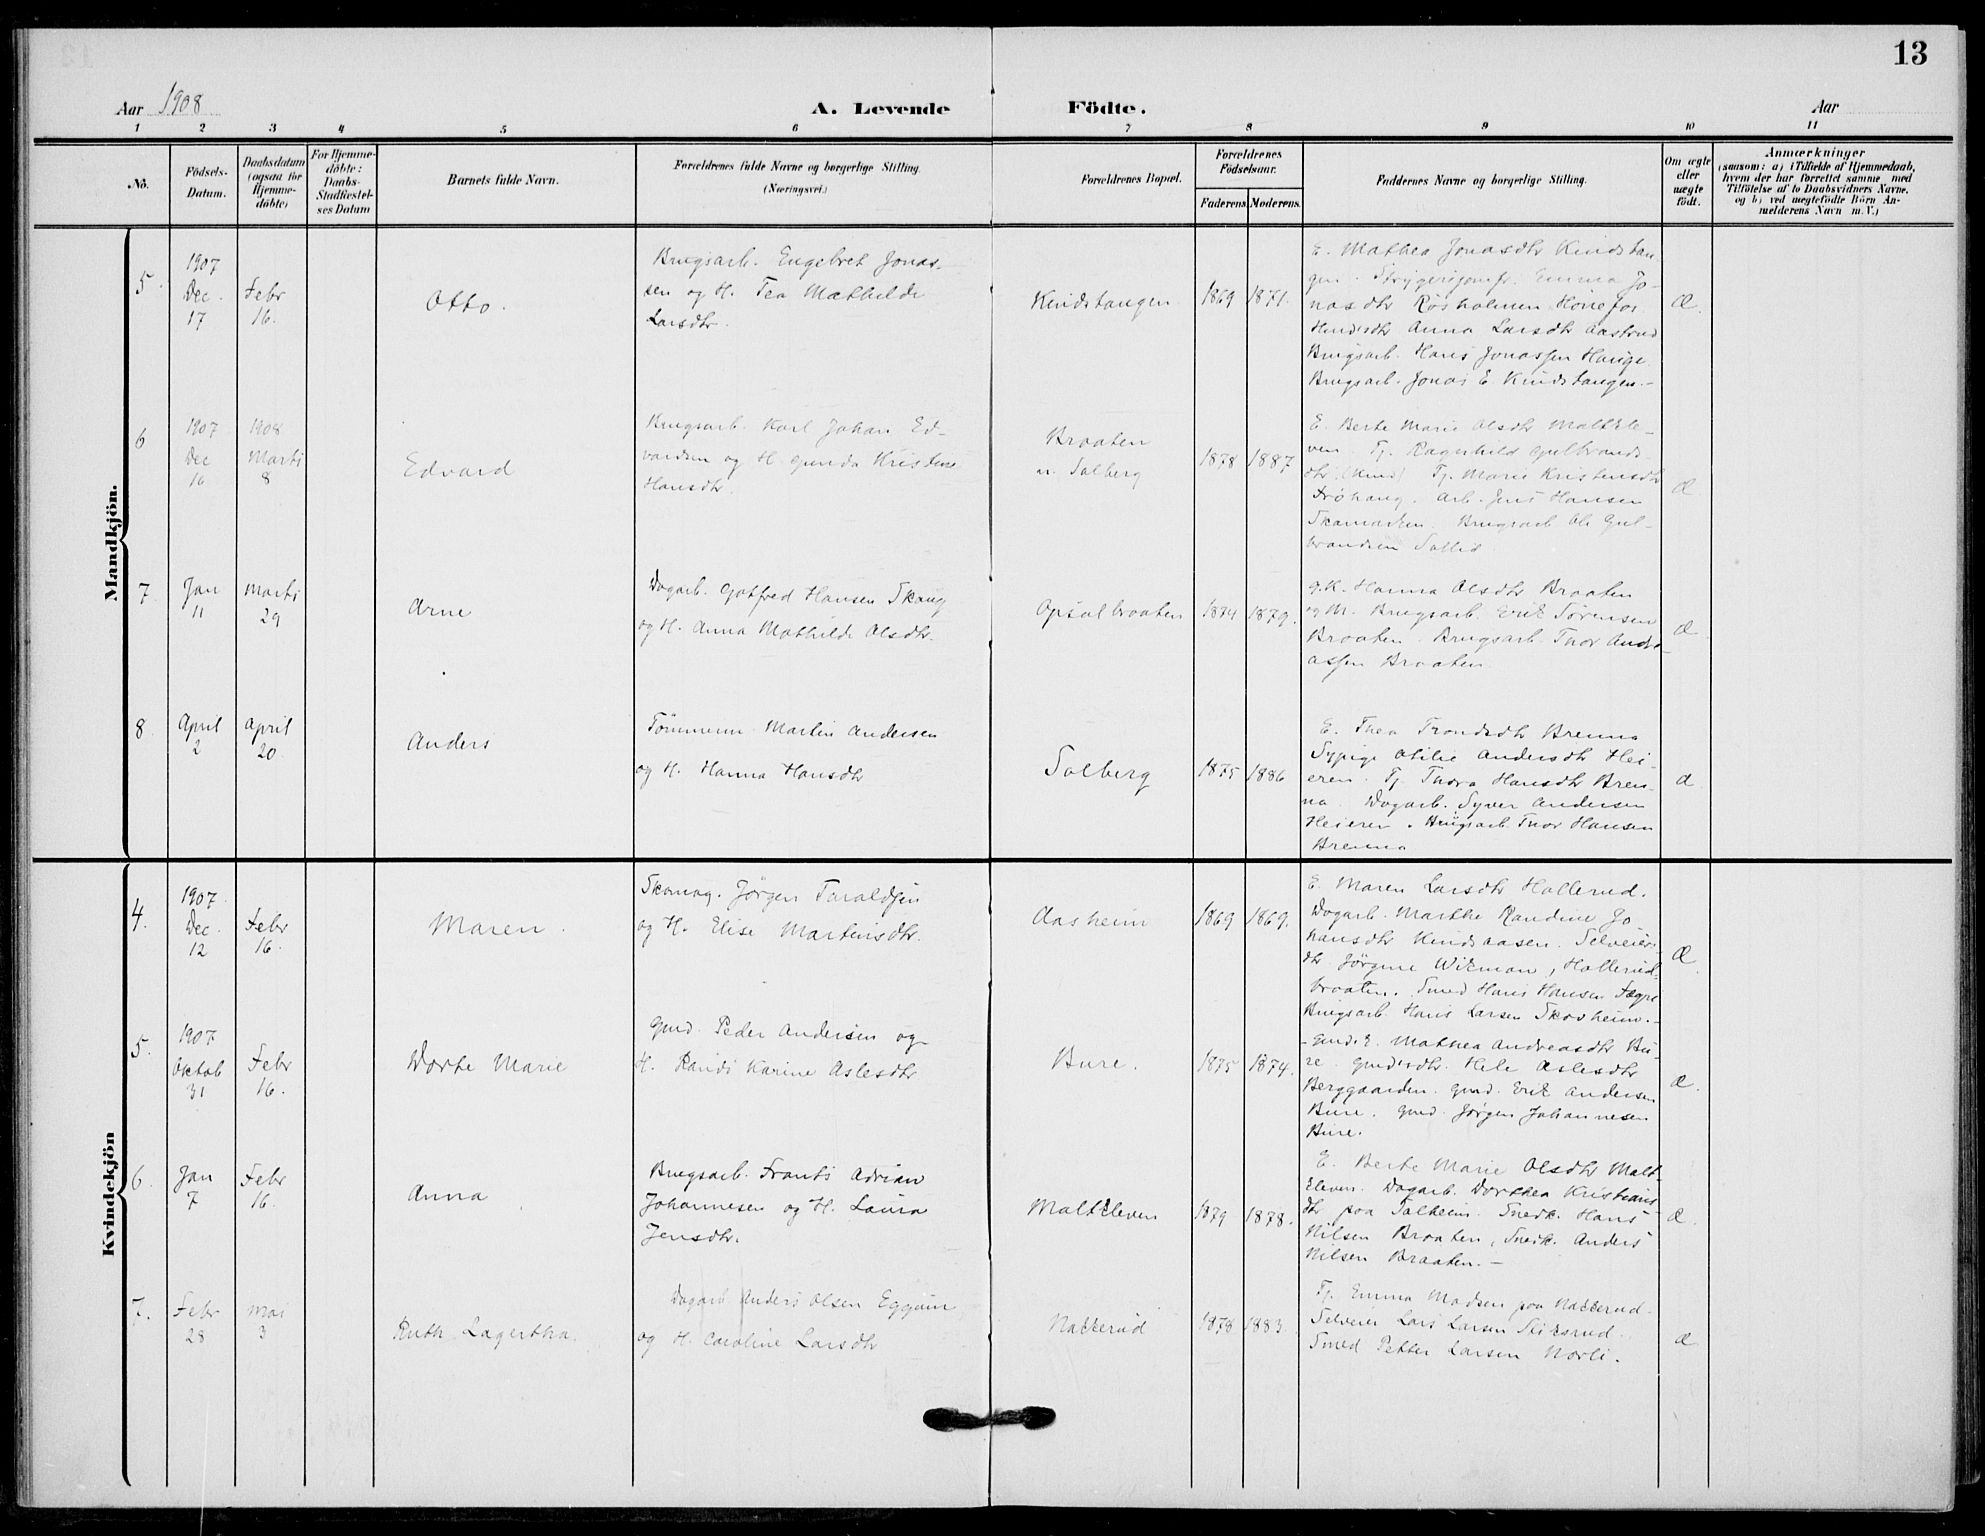 13
Aar 1908
A. Levende Födte.
Aar
1 2 3 4 5 6 7 8 9 10 11
No.
Födsels-
Datum.
Daabsdatum
(ogsaa for
Hjemme-
döbte)
For Hjemme-
döbte:
Daabs-
Stadfæstel-
ses Datum
Barnets fulde Navn.
Forældrenes fulde Navne og borgerlige Stilling.
(Næringsvei.)
Forældrenes Bopæl.
Forældrenes
Födselsaar.
Faderens. Moderens.
Faddernes Navne og borgerlige Stilling.
Om ægte
eller
uægte
födt.
Anmærkninger
(saasom: a) i Tilfælde af Hjemmedaab,
hvem der har forrettet samme, med
Tilföielse af to Daabsvidners Navne.
og b) ved uægtefödte Börn An-
melderens Navn m. V.)
Mandkjön.
5.
1907
Dec.
17
Febr
16.
Otto.
Brugsarb. Engebret Jonas-
sen og H. Tea Mathilde
Larsdtr.
Kindstangen
1869 1871.
E. Mathea Jonasdtr Kindstan-
gen. Strygersjomfr. Emma Jo-
nasdtr Røsholmen Hønefos
Anna Larsdtr Aastrud
Brugsarb. Hans Jonassen Hauge
Brugsarb. Jonas E. Kindstangen.-
Æ.
6
1907
Dec
16
1908
Marts
8
Edvard
Brugsarb. Karl Johan Ed-
vardsen og H. Gunda Kristine
Hansdtr.
Braaten
u. Solberg
1878 1887
E. Berte Marie Olsdtr Maltkle-
ven Tj. Ragnhild Gulbrands-
dtr. Tj. Marie Kristensdtr
Frøhaug. Arb. Jens Hansen
Brugsarb Ole Gul-
brandsen Sollid
Æ
7.
Jan
11
Marts
29
Arne
Dagarb. Gotfred Hansen Skaug
og H. Anna Mathilde Olsdtr.
Opsalbraaten
1874 1879.
G.K. Hanna Olsdtr Braaten
og M. Brugsarb. Erik Sørensen
Braaten. Brugsarb. Thor Andre-
assen Braaten
Æ
8
April
2
April
20
Anders
Tømmerm. Martin Andersen
og H. Hanna Hansdtr
Solberg
1875 1886
E. Thea Trondsdtr Brenna
Sypige Otilie Andersdtr Hei-
eren. Tj. Thora Hansdtr Bren-
na. Dagarb. Syver Andersen
Heieren. Brugsarb. Thor Hansen
Brenna
Æ
Kvindekjön
4.
1907
Dec.
12
Febr
16.
Maren.
Skomag. Jørgen Taraldsen
og H. Elise Martinsdtr.
Aasheim
1869 1869.
E. Maren Larsdtr Hallerud.
Dagarb. Marthe Randine Jo-
hansdtr Kindsaasen. Selveier-
dtr Jørgine Wikman, Hallerud-
braaten. Smed Hans Hansen Fagre
Brugsarb. Hans Larsen Skovheim.-
Æ.
5.
1907
Oktob
31
Febr
16.
Dorte Marie
Gmd. Peder Andersen og
H. Randi Karine Aslesdtr
Bure.
1875 1874.
- Gmds E. Mathea Andreasdtr Bu-
re. Gmdsdtr. Hele Aslesdtr
Berggaarden. Gmd. Erik Andersen
Bure. Gmd. Jørgen Johannesen
Bure.
Æ.
6.
Jan
7
Febr
16.
Anna
Brugsarb. Frants Adrian
Johannesen og H. Laura
Jensdtr.
Maltkleven
1879 1878.
E. Berte Marie Olsdtr Malt-
kleven. Dagarb. Dorthea Kristians-
dtr paa Solheim. Snedk. Hans
Nilsen Braaten, Snedk. Anders
Nilsen Braaten.-
Æ.
7.
Febr
28
Mai
3
Ruth Lagertha.
Dagarb Anders Olsen Eggum
og H. Caroline Larsdtr
Nakkerud
1878 1883.
Tj. Emma Madsen paa Nakkerud.
Selveier Lars Larsen Stiksrud.
Smed Petter Larsen Norli.
Æ